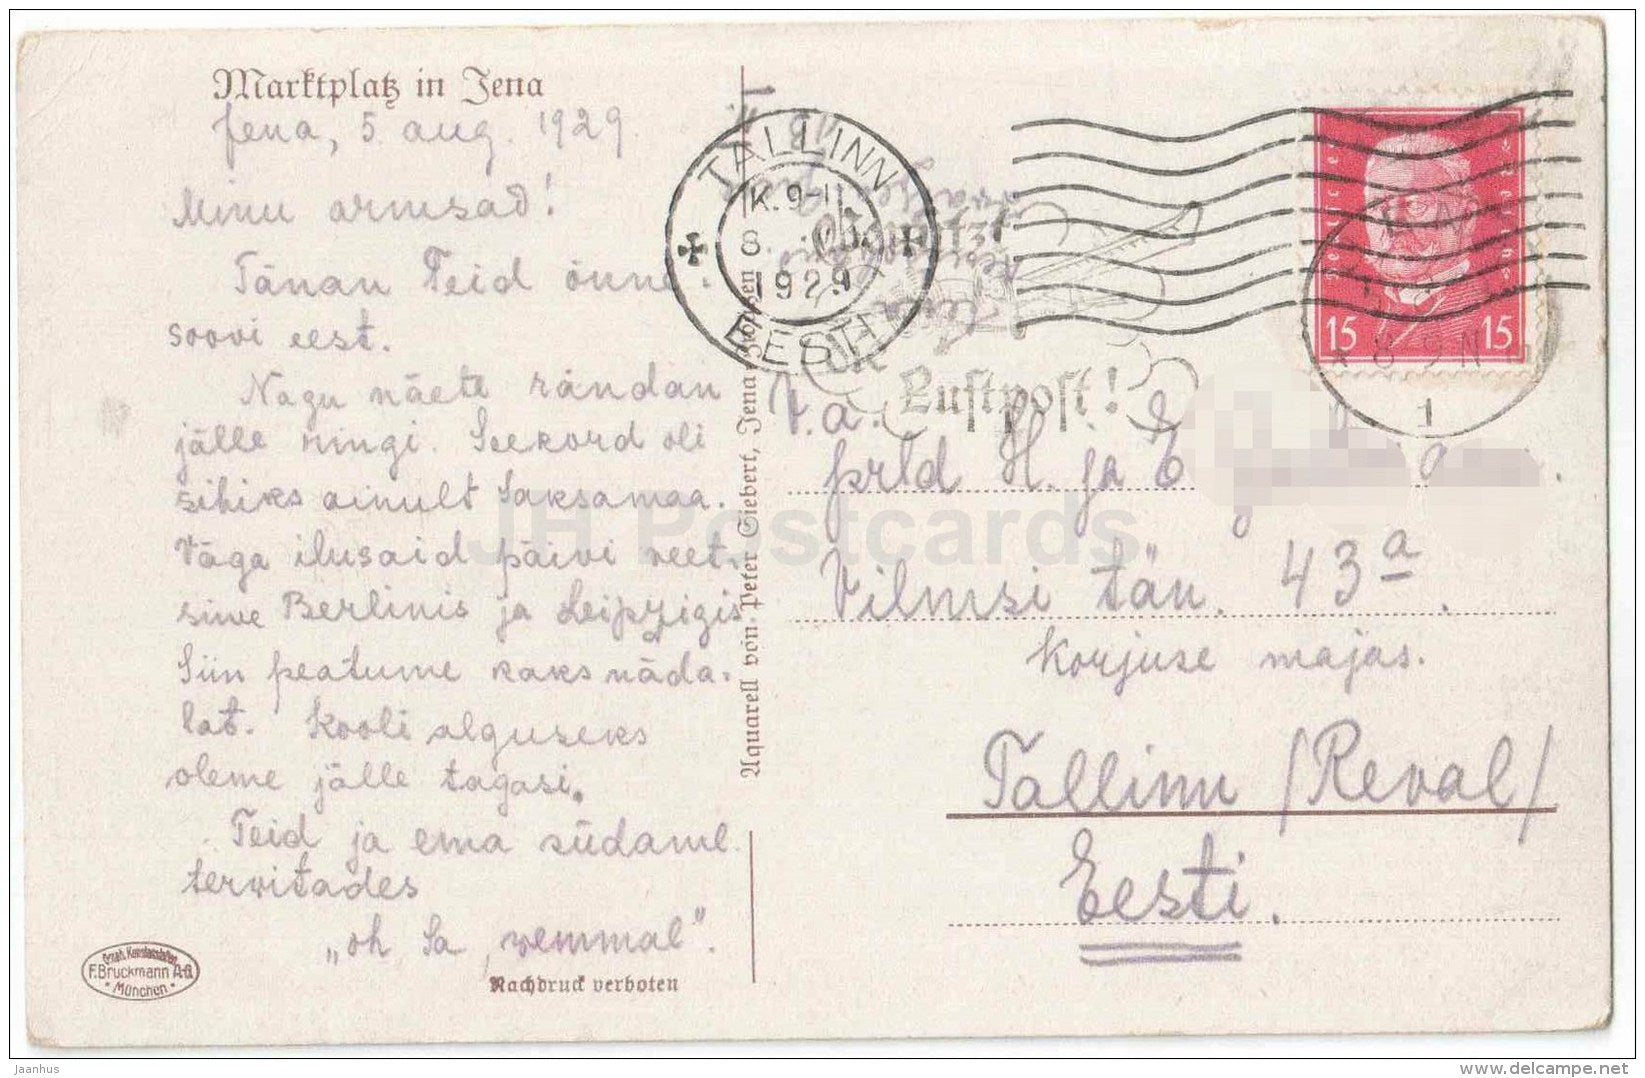 Marktplatz in Jena
Jena, 5. aug. 1929.
Minu armsad!
Tänan Teid õnne-
soovi eest.
Nagu näete rändan
jälle ringi. Seekord oli
sihiks ainult Saksamaa.
Väga ilusaid päivi veet-
sime Berlinis ja Leipzigis
Siin peatume kaks näda-
lat. Kooli alguseks
oleme jälle tagasi.
Teid ja ema südaml.
tervitades
„oh sa, vemmal".
Nachdruck verboten
F. Bruckmann A-G
München
Aquarell von Peter Siebert, Jena
TALLINN
K. 9-11
8
1929
EESTI
Luftpost!
Deutsches Reich
15 15
8 9 N
1
V. a.
prld H. ja E
Vilmsi tän. 43a.
Korjuse majas.
Tallinn /Reval/
Eesti.
JH Postcards
jaanhus
delcampe.net